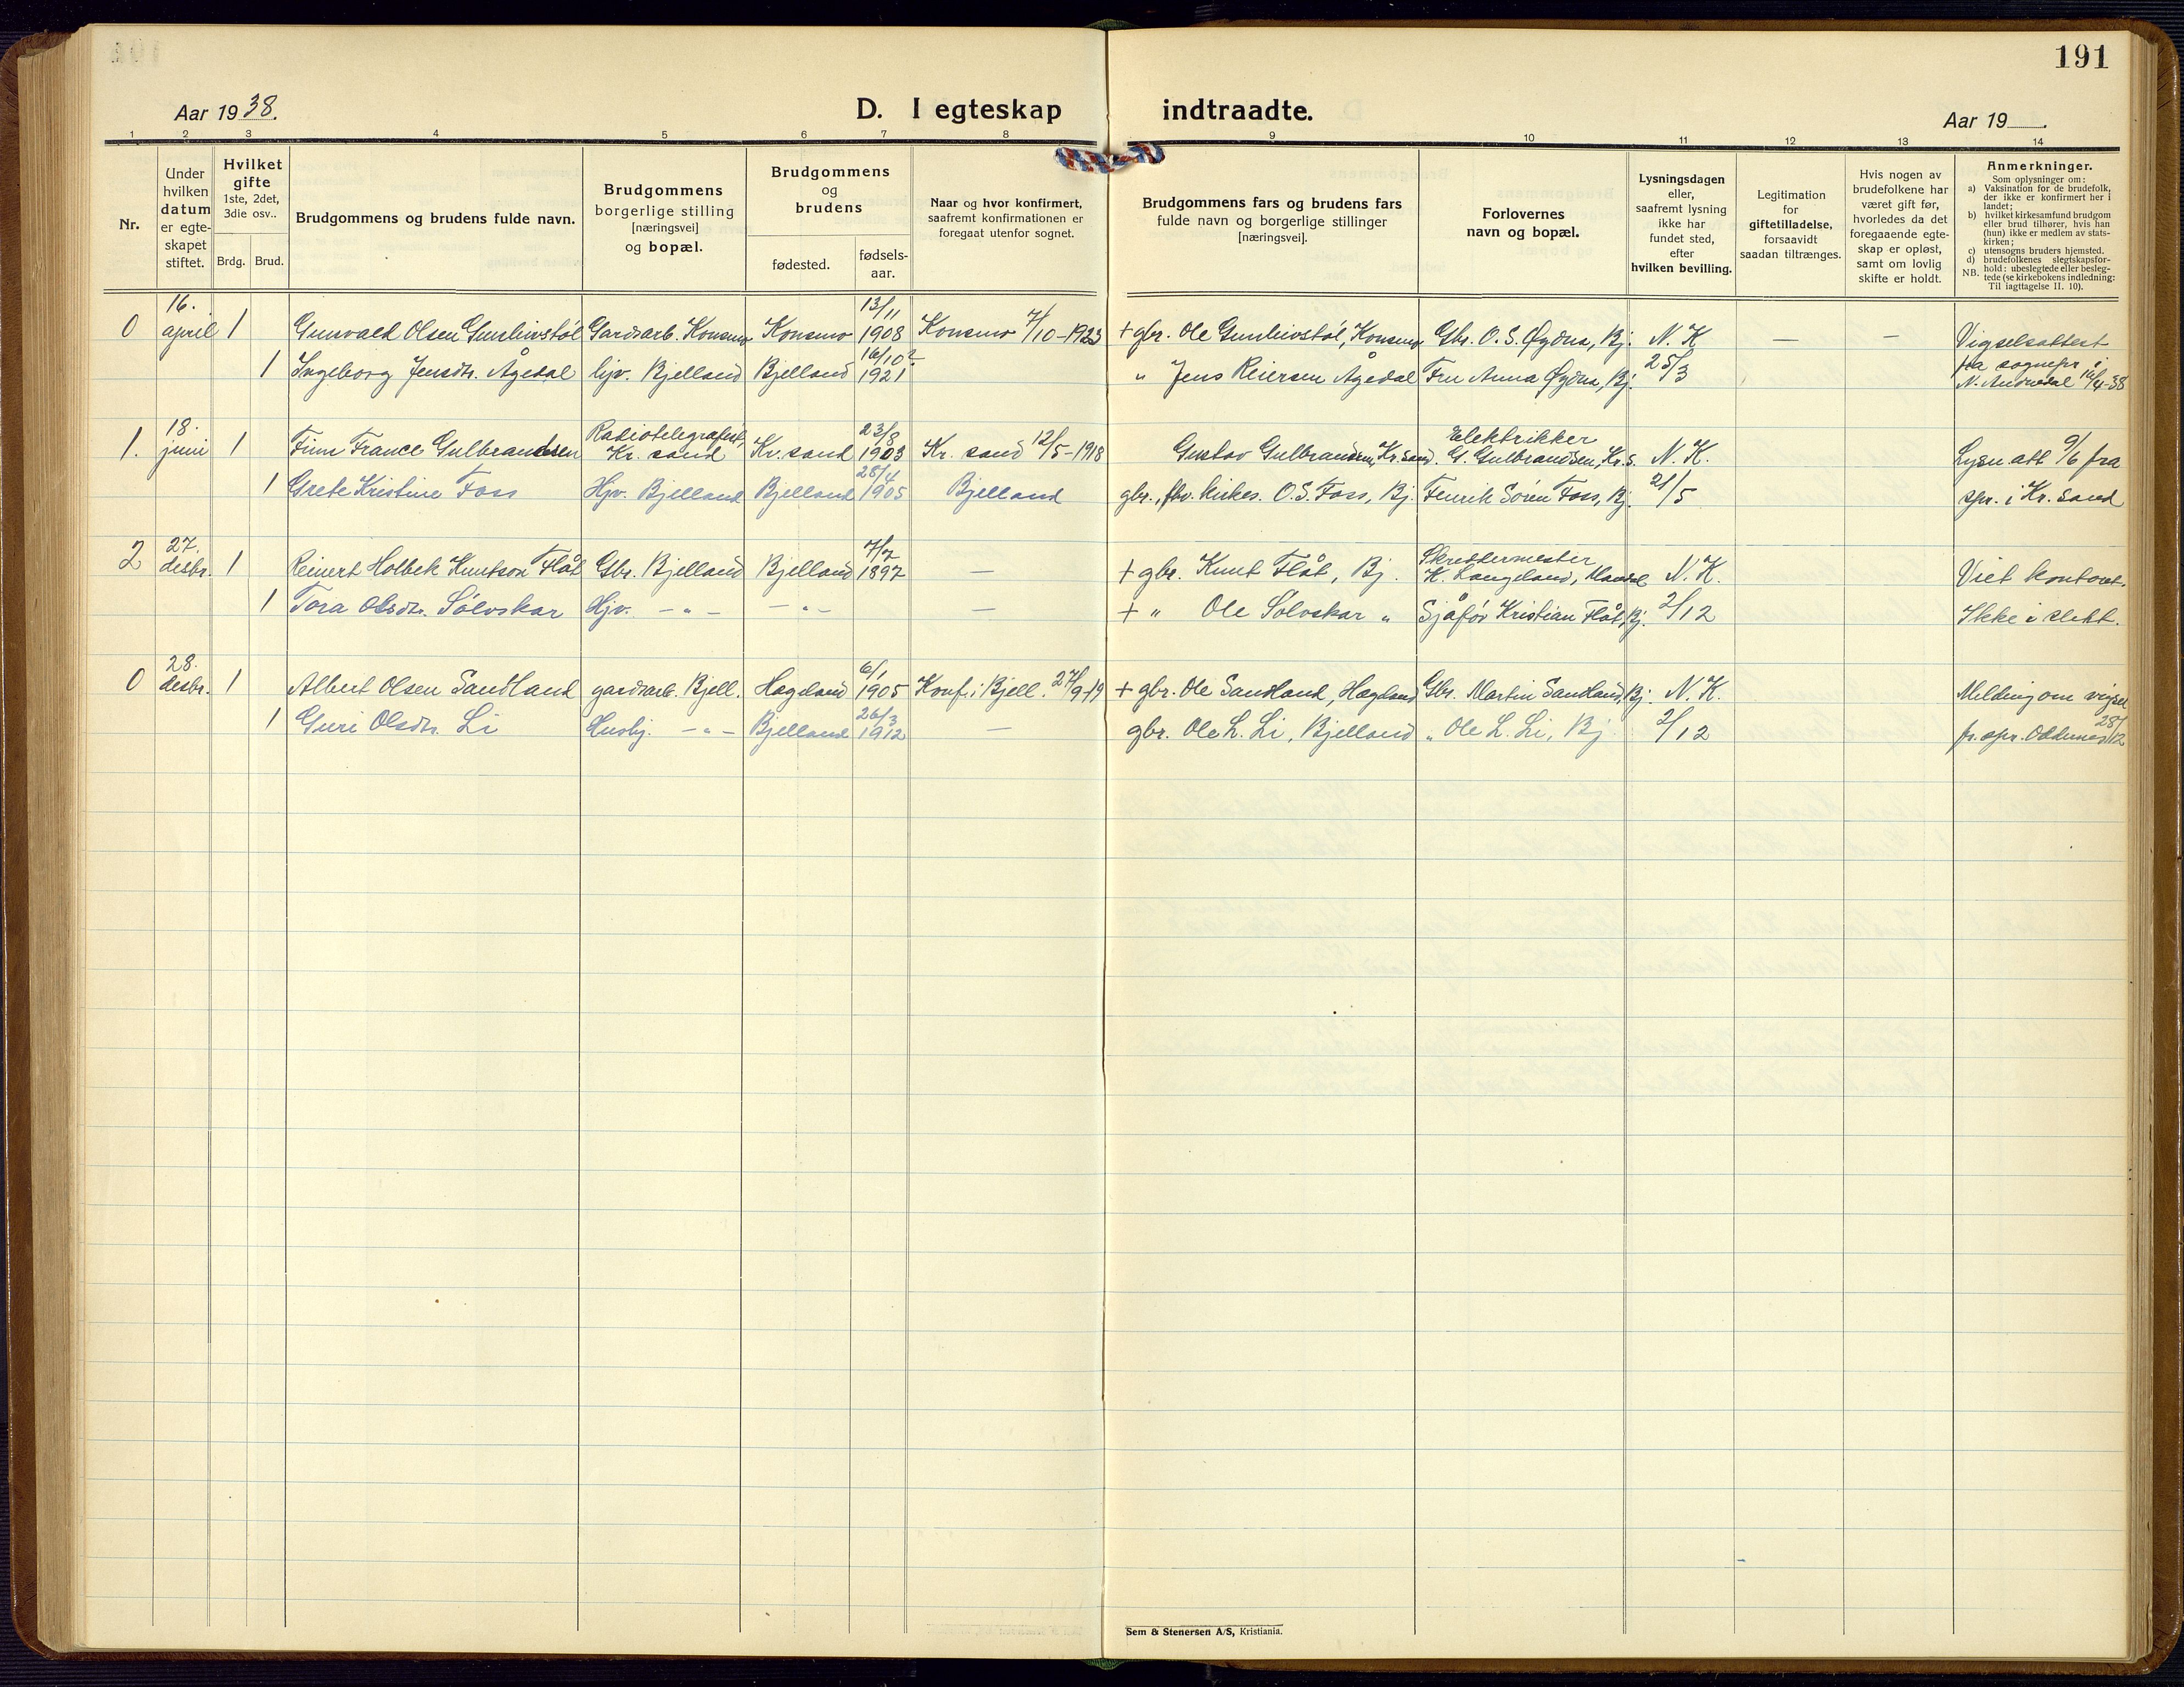 191
Aar 1938.
D. I egteskap indtraadte.
Aar 19
1 2 3 4 5 6 7 8 9 10 11 12 13 14
Nr.
Under
hvilken
datum
er egte-
skapet
stiftet.
Hvilket
gifte
1ste, 2det,
3die osv..
Brdg. Brud.
Brudgommens og brudens fulde navn.
Brudgommens
borgerlige stilling
[næringsvei]
og bopæl.
Brudgommens
og
brudens
fødested.
fødsels-
aar.
Naar og hvor konfirmert,
saafremt konfirmationen er
foregaat utenfor sognet.
Brudgommens fars og brudens fars
fulde navn og borgerlige stillinger
[næringsvei].
Forlovernes
navn og bopæl.
Lysningsdagen
eller,
saafremt lysning
ikke har
fundet sted,
efter
hvilken bevilling.
Legitimation
for
giftetilladelse,
forsaavidt
saadan tiltrænges.
Hvis nogen av
brudefolkene har
været gift før,
hvorledes da det
foregaaende egte-
skap er opløst,
samt om lovlig
skifte er holdt.
Anmerkninger.
Som oplysninger om:
a) Vaksination for de brudefolk,
der ikke er konfirmert her i
landet;
b) hvilket kirkesamfund brudgom
eller brud tilhører, hvis han
(hun) ikke er medlem av stats-
kirken;
c) utensogns bruders hjemsted.
d) brudefolkenes slegtskapsfor-
hold: ubeslegtede eller besleg-
NB. tede (se kirkebokens indledning:
Til iagttagelse II. 10).
0 16. april 1 Gunvald Olsen Gunleivstøl Gardsarb. Konsmo Konsmo 13/11 1908 Konsmo 7/10-1923 + gbr. Ole Gunleivstøl, Konsmo Gbr. O. S. Øydna, Bj. N. K. — — Vigselsattest
1 Ingeborg Jensdtr. Ågedal hjv. Bjelland Bjelland 16/10 1921 " Jens Reiersen Ågedal Fru Anna Øydna, Bj. 25/3 fra sognepr. i
N. Audnedal 16/4-38
1. 18. juni 1 Finn France Gulbrandsen Radiotelegrafist, Kr. sand Kr. sand 23/8 1903 Kr. sand 12/5-1918 Gustav Gulbrandsen, Kr. sand. Elektrikker G. Gulbrandsen, Kr. S. N. K. Lysn att 9/6 fra
1 Grete Kristine Foss Hjv. Bjelland Bjelland 28/4 1905 Bjelland gbr., fhv. kirkes. O. S. Foss, Bj. Fenrik Søren Foss, Bj. 21/5 spr. i Kr. sand
2 27. desbr. 1 Reinert Holbek Knutson Flåt Gbr. Bjelland Bjelland 7/7 1897 — + gbr. Knut Flåt, Bj. Skreddermester K. Langeland, Mandal N. K. Viet kontoret.
1 Tora Olsdtr. Sølvskar Hjv. — " — — " — — + " Ole Sølvskar " Sjåfør Kristian Flåt, Bj. 2/12 Ikke i slekt.
0 28. desbr. 1 Albert Olsen Sandland gardsarb. Bjell. Hægeland 6/1 1905 Konf. i Bjell. 27/9-19 + gbr. Ole Sandland, Hægeland Gbr. Martin Sandland, Bj. N. K. Melding om vigsel
1 Guri Olsdtr. Li Husbj. — " — Bjelland 26/3 1912 — gbr. Ole L. Li, Bjelland " Ole L. Li, Bj. 2/12 fr. spr. Oddernes 28/12
Sem & Stenersen A/S, Kristiania.